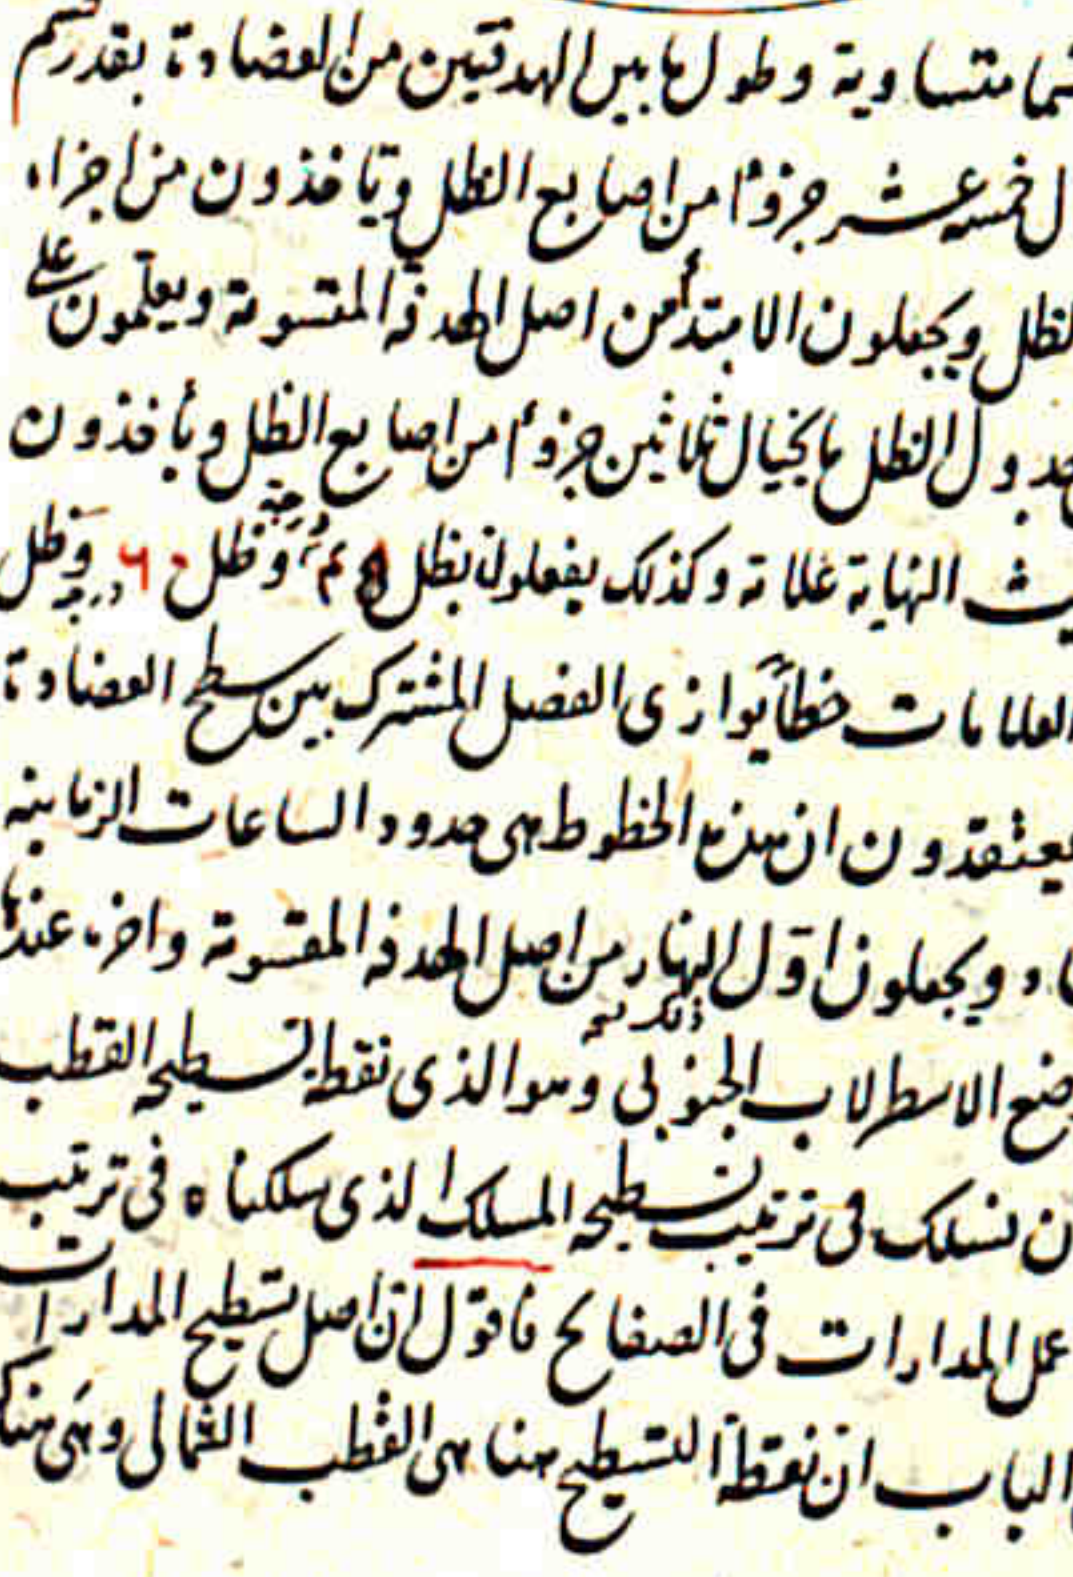 متساوية وطول ما بين الهدفتين من العضادة بقدر قسم
خمسة عشر جزؤا من اصابع الظل ويأخذون من اجزاء
الظل ويجعلون الابتدأ من اصل الهدفة المقسومة ويعلمون على
جدول الظل ما بحيال ثلاثين جزؤا من اصابع الظل ويأخذون
النهاية علامة وكذلك يفعلون بظل درجة وظل ٦٠ درجة وظل
العلامات خطاً يوازى الفصل المشترك بين سطح العضادة
فيعتقدون ان هذه الخطوط هى حدود الساعات الزمانية
ويجعلون اوّل النهار من اصل الهدفة المقسومة واخره عند
الاسطرلاب الجنوبى وهو الذى نقطة تسطيحه القطب
ان نسلك فى ترتيب تسطيحه المسلك الذى سلكناه فى ترتيب
عمل المدارات فى الصفايح فاقول انّ اصل تسطيح المدارات
الباب ان نقطة التسطيح هنا هى القطب الشمالى وهى